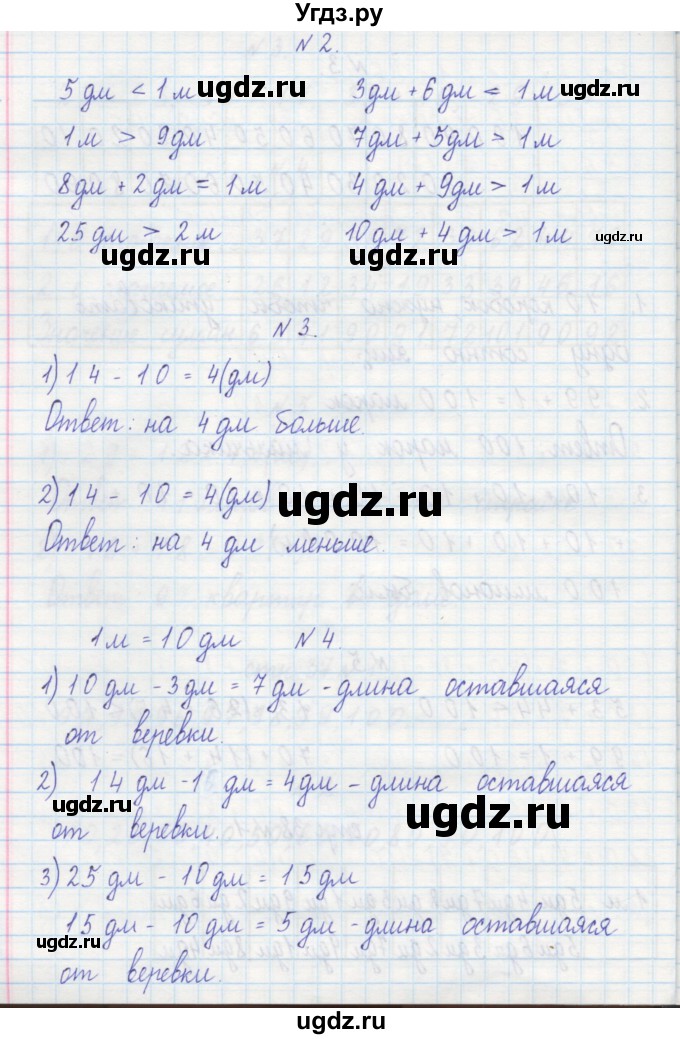 Угдз.ру
N 2.
5 дм < 1 м ugdz.ru 3дм + 6 дм = 1м ugdz.ru
1м > 9дм 7дм + 5дм > 1м
8дм + 2 дм = 1м 4 дм + 9дм > 1м
25 дм > 2 м 10дм + 4 дм > 1м ugdz.ru
ugdz.ru ugdz.ru
N 3.
1) 14 - 10 = 4(дм)
Ответ: на 4 дм больше.
2) 14 - 10 = 4(дм) ugdz.ru
Ответ: на 4 дм меньше.
1м = 10 дм N 4.
1) 10 дм - 3дм = 7 дм - длина оставшаяся
от веревки.
2) 14 дм - 1 дм = 4дм - длина оставшаяся
ugdz.ru ugdz.ru
от веревки.
3) 25 дм - 10 дм = 15 дм
15 дм - 10 дм = 5 дм - длина оставшаяся
ugdz.ru
от веревки. ugdz.ru
ugdz.ru